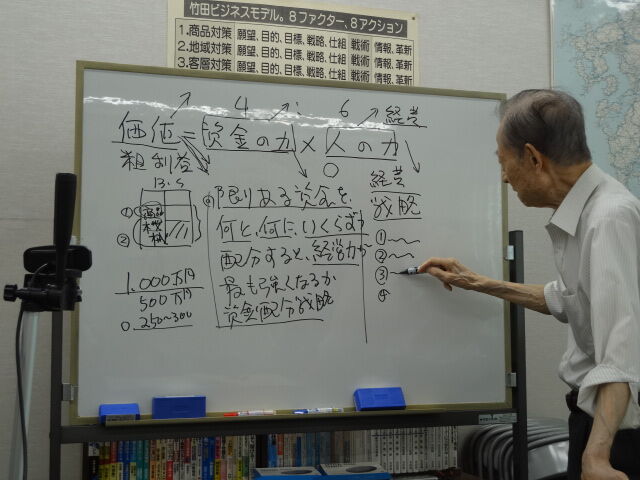 竹田ビジネスモデル。8ファクター、8アクション
1.商品対策 願望、目的、目標、戦略、仕組 戦術 情報、革新
2.地域対策 願望、目的、目標、戦略、仕組 戦術 情報、革新
3.客層対策 願望、目的、目標、戦略、仕組 戦術 情報、革新
4 : 6 経営
価値=資金の力×人の力
粗利益
13.5
① 商品
② 機械
限りある資金を
何と、何に、いくらずつ
配分すると、経営力が
最も強くなるか
資金配分戦略
経営
戦略
①
②
③
④
1.000万円
500万円
0.250~300